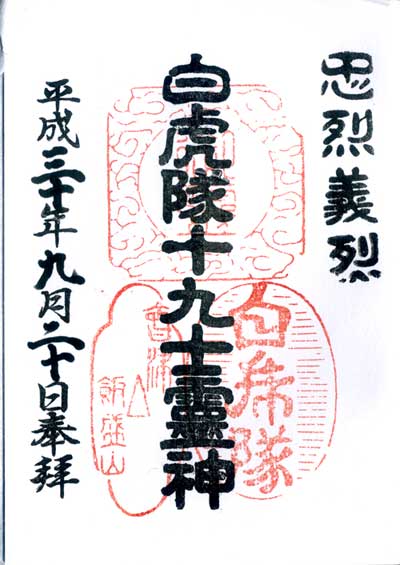 忠烈義烈
白虎隊十九士靈神
平成三十年九月二十日奉拝
白乕隊
會津
飯盛山